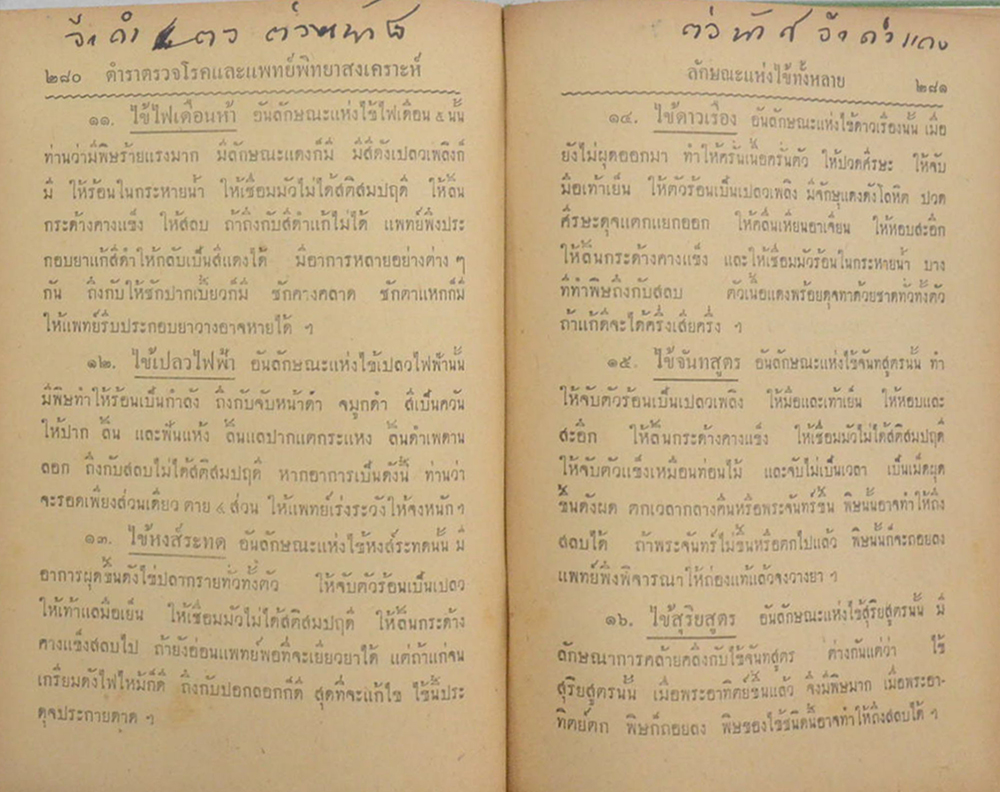 ๒๘๐ ตำราตรวจโรคและแพทย์พิทยาสงเคราะห์
๑๑. ไข้ไฟเดือนห้า อันลักษณะแห่งไข้ไฟเดือน ๕ นั้น
ท่านว่ามีพิษร้ายแรงมาก มีลักษณะแดงก็มี มีสีดังเปลวเพลิงก็
มี ให้ร้อนในกระหายน้ำ ให้เชื่อมมัวไม่ได้สติสมปฤดี ให้ลิ้น
กระด้างคางแข็ง ให้สลบ ถ้าถึงกับสีดำแก้ไม่ได้ แพทย์พึงประ
กอบยาแก้สีดำให้กลับเป็นสีแดงได้ มีอาการหลายอย่างต่าง ๆ
กัน ถึงกับให้ชักปากเบี้ยวก็มี ชักคางคลาด ชักตาแหกก็มี
ให้แพทย์รีบประกอบยาวางอาจหายได้ ฯ
๑๒. ไข้เปลวไฟฟ้า อันลักษณะแห่งไข้เปลวไฟฟ้านั้น
มีพิษทำให้ร้อนเป็นกำลัง ถึงกับจับหน้าดำ จมูกดำ สีเป็นควัน
ให้ปาก ลิ้น และฟันแห้ง ลิ้นแลปากแตกระแหง ลิ้นดำเพดาน
ลอก ถึงกับสลบไม่ได้สติสมปฤดี หากอาการเป็นดังนี้ ท่านว่า
จะรอดเพียงส่วนเดียว ตาย ๔ ส่วน ให้แพทย์เร่งระวังให้จงหนัก ฯ
๑๓. ไข้หงส์ระทด อันลักษณะแห่งไข้หงส์ระทดนั้น มี
อาการผุดขึ้นดังไข่ปลากรายทั่วทั้งตัว ให้จับตัวร้อนเป็นเปลว
ให้เท้าแลมือเย็น ให้เชื่อมมัวไม่ได้สติสมปฤดี ให้ลิ้นกระด้าง
คางแข็งสลบไป ถ้ายังอ่อนแพทย์พอที่จะเยียวยาได้ แต่ถ้าแก่จน
เกรียมดังไฟไหม้ก็ดี ถึงกับปอกลอกก็ดี สุดที่จะแก้ไข ไข้นี้ประ
ดุจประกายดาด ฯ
ลักษณะแห่งไข้ทั้งหลาย ๒๘๑
๑๔. ไข้ดาวเรือง อันลักษณะแห่งไข้ดาวเรืองนั้น เมื่อ
ยังไม่ผุดออกมา ทำให้ครั่นเนื้อครั่นตัว ให้ปวดศีรษะ ให้จับ
มือเท้าเย็น ให้ตัวร้อนเป็นเปลวเพลิง มีจักษุแดงดังโลหิต ปวด
ศีรษะดุจแตกแยกออก ให้คลื่นเหียนอาเจียน ให้หอบสะอึก
ให้ลิ้นกระด้างคางแข็ง และให้เชื่อมมัวร้อนในกระหายน้ำ บาง
ที่ทำพิษถึงกับสลบ ตัวเนื้อแดงพร้อยดุจทาด้วยชาดทั่วทั้งตัว
ถ้าแก้ดีจะได้ครึ่งเสียครึ่ง ฯ
๑๕. ไข้จันทสูตร อันลักษณะแห่งไข้จันทสูตรนั้น ทำ
ให้จับตัวร้อนเป็นเปลวเพลิง ให้มือและเท้าเย็น ให้หอบและ
สะอึก ให้ลิ้นกระด้างคางแข็ง ให้เชื่อมมัวไม่ได้สติสมปฤดี
ให้จับตัวแข็งเหมือนท่อนไม้ และจับไม่เป็นเวลา เป็นเม็ดผุด
ขึ้นดังผด ตกเวลากลางคืนหรือพระจันทร์ขึ้น พิษนั้นอาจทำให้ถึง
สลบได้ ถ้าพระจันทร์ไม่ขึ้นหรือตกไปแล้ว พิษนั้นก็จะถอยลง
แพทย์พึงพิจารณาให้ถ่องแท้แล้วจงวางยา ฯ
๑๖. ไข้สุริยสูตร อันลักษณะแห่งไข้สุริยสูตรนั้น มี
ลักษณาการคล้ายคลึงกับไข้จันทสูตร ต่างกันแต่ว่า ไข้
สุริยสูตรนั้น เมื่อพระอาทิตย์ขึ้นแล้ว จึงมีพิษมาก เมื่อพระอา-
ทิตย์ตก พิษก็ถอยลง พิษของไข้ชนิดนี้อาจทำให้ถึงสลบได้ ฯ